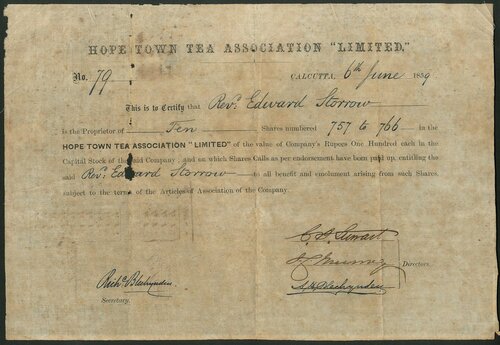 HOPE TOWN TEA ASSOCIATION "LIMITED."
No. 79 CALCUTTA, 6th June 1859
This is to Certify that Revd. Edward Storrow
is the Proprietor of Ten Shares numbered 757 to 766 in the
HOPE TOWN TEA ASSOCIATION "LIMITED" of the value of Company's Rupees One Hundred each in the
Capital Stock of the said Company, and on which Shares Calls as per endorsement have been paid up, entitling the
said Revd. Edward Storrow to all benefit and emolument arising from such Shares,
subject to the terms of the Articles of Association of the Company.
Stewart
Directors.
Richd. Blechynden
Blechynden
Secretary.